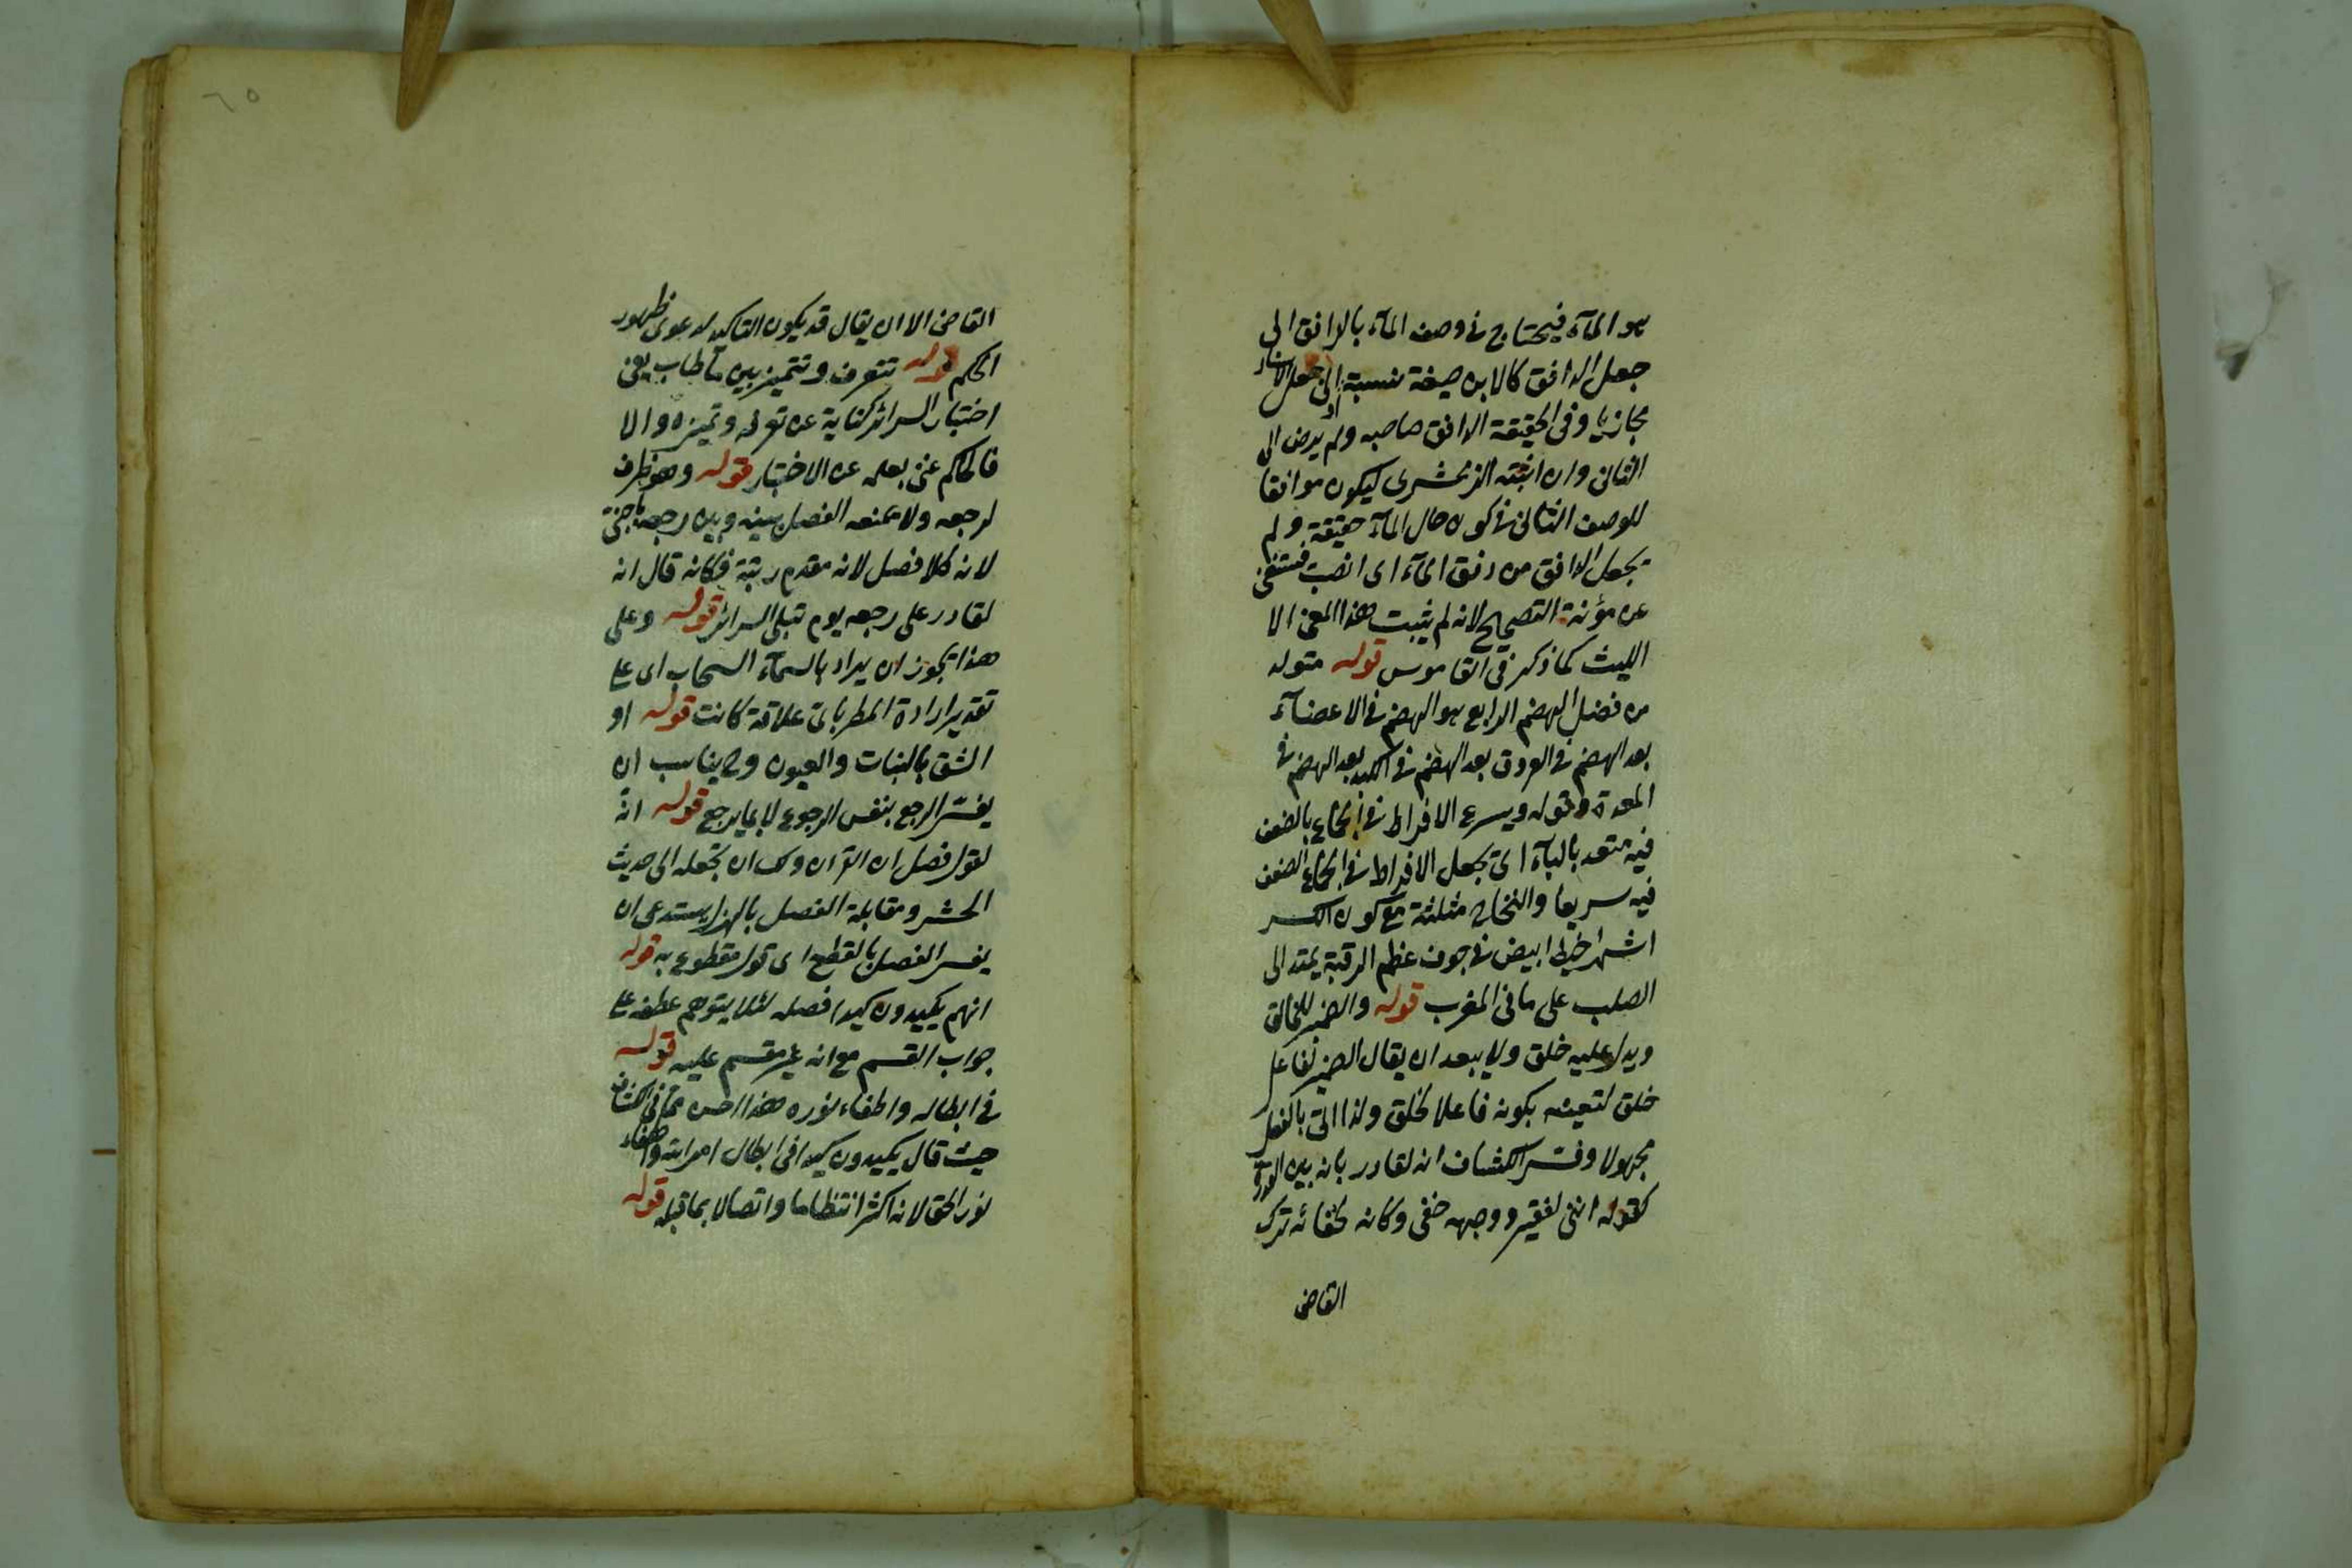 هو المآء فيحتاج فى وصف المآء بالدافق الى
جعل الدافق كالابن صيغة نسبة او الى جعل الاسناد
مجازيا وفى الحقيقة الدافق صاحبه ولم يرض الى
الثانى وان اثبته الزمخشرى ليكون موافقا
للوصف الثانى فى كونه حال المآء حقيقة ولم
يجعل الدافق من دفق المآء اى انصب فيستغنى
عن مؤنة التصحيح لانه لم يثبت هذا المعنى الا
الليث كما ذكر فى القاموس قوله متولد
من فضل الهضم الرابع هو الهضم فى الاعضآء
بعد الهضم فى العروق بعد الهضم فى الكبد بعد الهضم فى
المعدة وقوله ويسرع الافراط فى الجماع بالضعف
فيه متعد بالبآء اى يجعل الافراط فى الجماع الضعف
فيه سريعا والنخاع مثلثة مع كون الكسر
اشهر خيط ابيض فى جوف عظم الرقبة يمتد الى
الصلب على ما فى المغرب قوله والضمير للخالق
ويدل عليه خلق ولا يبعد ان يقال الضمير لفاعل
خلق لتعينه بكونه فاعلا لخلق ولذا اتى بالفعل
مجهولا وفسر الكشاف انه لقادر بانه بين القدرة
كقوله اننى لفقير ووجهه خفى وكانه لخفائه ترك
القاضى
القاضى الا ان يقال قد يكون التاكيد لدعوى ظهور
الحكم قوله تتعرف وتتميز بين ما طاب يعنى
اختبار السرائر كناية عن تعرفه وتميزه والا
فالحاكم غنى بعلمه عن الاختبار قوله وهو ظرف
لرجعه ولا يمنعه الفصل بينه وبين رجعه باجنبى
لانه كلا فصل لانه مقدم رتبة فكانه قال انه
لقادر على رجعه يوم تبلى السرائر قوله وعلى
هذا يجوز ان يراد بالسمآء السحاب اى على
تقدير ارادة المطر باى علاقة كانت قوله او
الشق بالنبات والعيون وح يناسب ان
يفسر الرجع بنفس الرجوع لا بما يرجع قوله انه
لقول فصل ان القرآن ولك ان تجعله الى حديث
الحشر ومقابلة الفصل بالهزل يستدعى ان
يفسر الفصل بالقطع اى قول مقطوع به قوله
انهم يكيدون كيدا فصله لئلا يتوهم عطفه على
جواب القسم مع انه غير مقسم عليه قوله
فى ابطاله واطفاء نوره هذا احسن مما فى الكشاف
حيث قال يكيدون كيدا فى ابطال امر الله واطفاء
نور الحق لانه اكثر انتظاما واتصالا بما قبله قوله